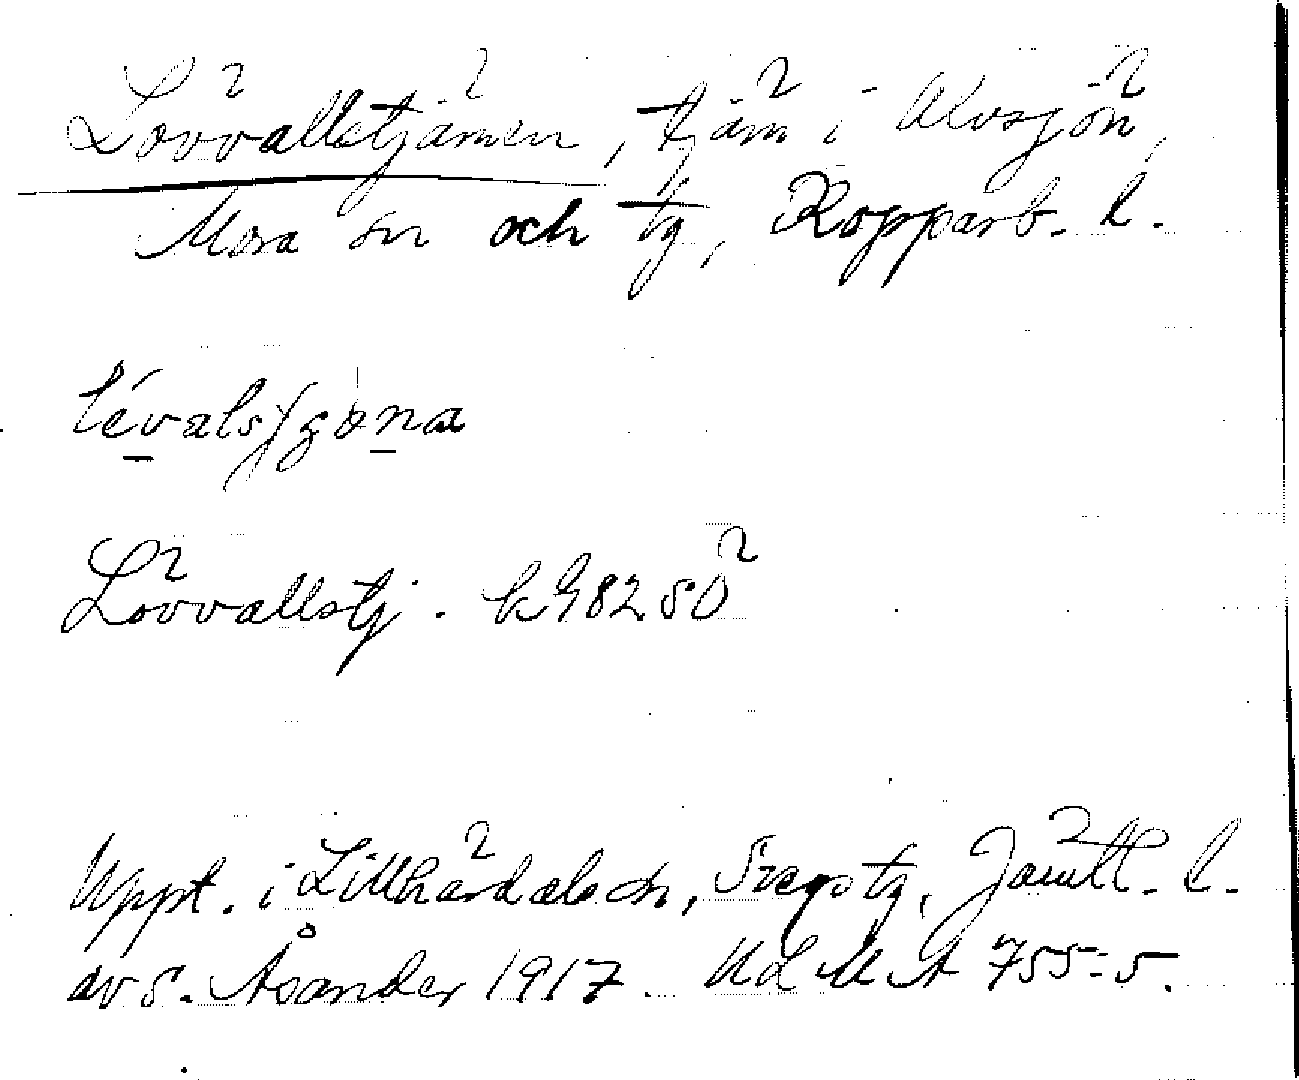 Lövvallstjärnen, tjärn i Älvsjön,
Mora sn och tg, Kopparb. l.
Lövvallstj. kg 82 50
Uppt. i Lillhärdals sn, Svegs tg, Jämtl. l.
av S. Åsander 1917. ULMA 755:5.